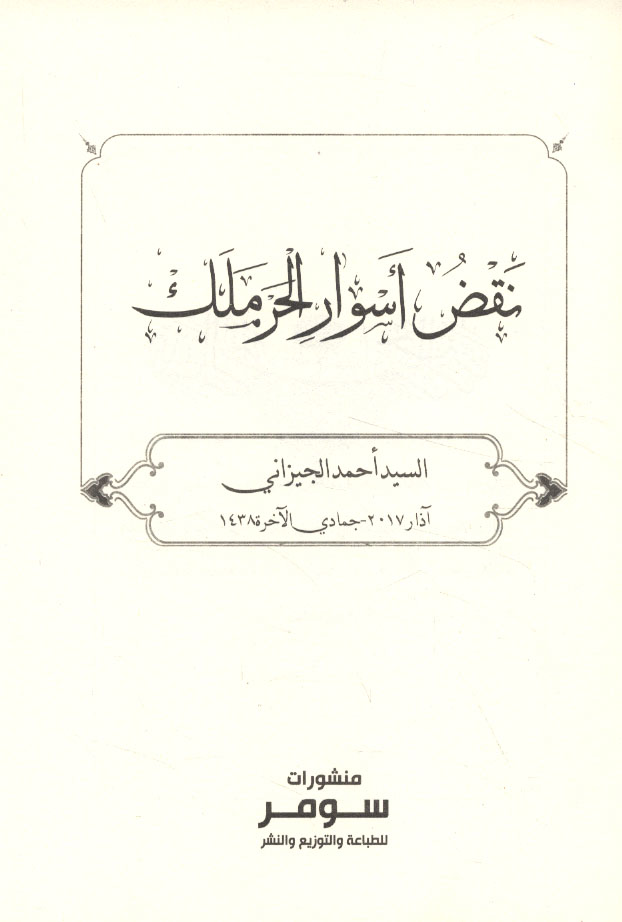 نَقْضُ أَسْوارِ الحَرَمْلَك
السيد أحمد الجيزاني
آذار ٢٠١٧-جمادي الآخرة ١٤٣٨
منشورات
سومر
للطباعة والتوزيع والنشر